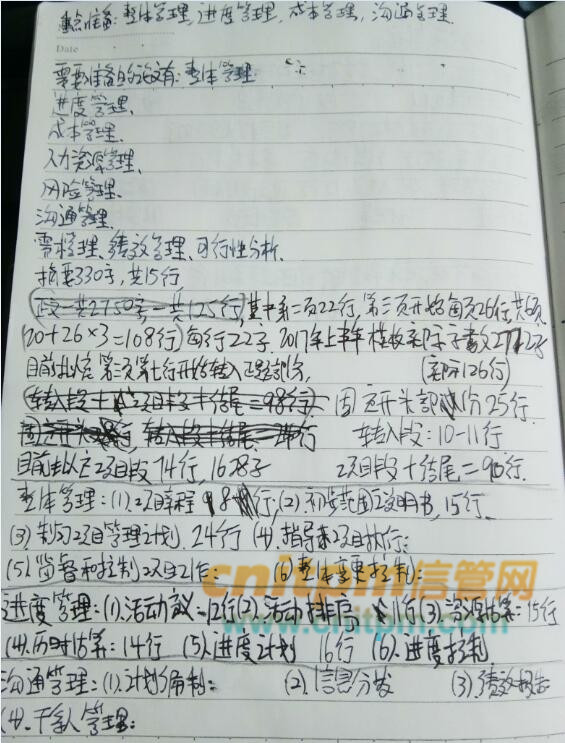 重点准备:整体管理,进度管理,成本管理,沟通管理.
Date
需要准备的论文有:整体管理
进度管理、
成本管理、
人力资源管理、
风险管理、
沟通管理、
需求管理、绩效管理、可行性分析、
摘要330字,共15行,
正文一共2750字一共125行,其中第二页22行,第三页开始每页26行共6页
(20+26×3=108行)每行22字,2017年上半年模板亲际子
目前拟定第二页第七行开始转入正题部分, (实际126行)
(转入段+项目段+结尾=98行) 因之开头部分25行.
转入段+结尾 转入段:10-11行
目前拟定项目段74行,1628字 项目段+结尾=90行.
整体管理:(1).项目章程 18行;(2).初步范围说明书,15行
(3).制订项目管理计划.24行 (4).指导和项目执行:
(5).监督和控制项目工作: (6).整体变更控制:
cnitpm信管网
www.cnitpm.com
进度管理:(1).活动定义-12行(2).活动排序 11行(3).资源估算:15行
(4).历时估算:14行 (5).进度计划 16行 (6).进度控制
沟通管理:(1).计划编制: (2).信息分发 (3).绩效报告
(4).干系人管理: